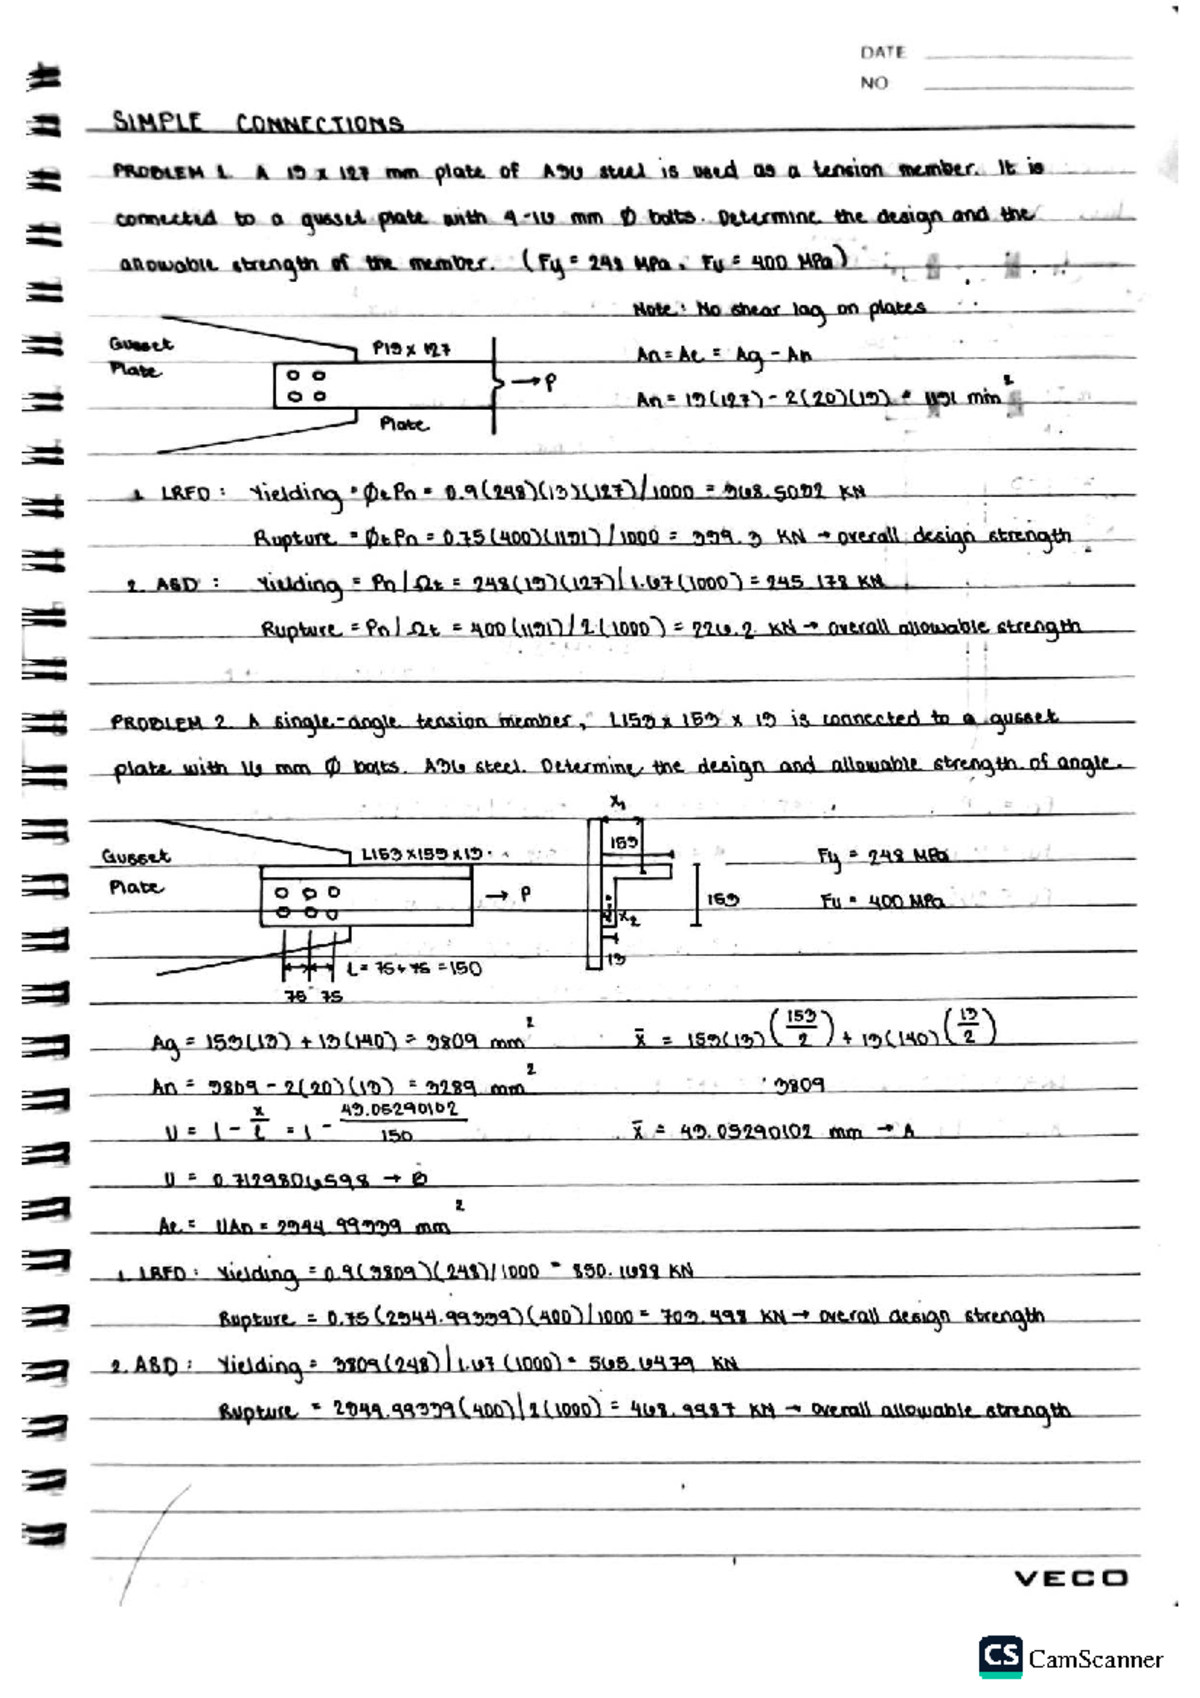 DATE
NO
SIMPLE CONNECTIONS
PROBLEM 1. A 13 x 127 mm plate of A36 steel is used as a tension member. It is
connected to a gusset plate with 4-16 mm Ø bolts. Determine the design and the
allowable strength of the member. (Fy = 248 MPa, Fu = 400 MPa)
Note: No shear lag on plates
Gusset
Plate
P13 x 127
→ P
Plate
An = Ae = Ag - An
An = 13(127) - 2(20)(13) = 1131 mm²
1. LRFD: Yielding = ØtPn = 0.9(248)(13)(127)/1000 = 368.5032 KN
Rupture = ØtPn = 0.75(400)(1131)/1000 = 339.3 KN → overall design strength
2. ASD: Yielding = Pn/Ωt = 248(13)(127)/1.67(1000) = 245.178 KN
Rupture = Pn/Ωt = 400(1131)/2(1000) = 226.2 KN → overall allowable strength
PROBLEM 2. A single-angle tension member, L153 x 153 x 13 is connected to a gusset
plate with 16 mm Ø bolts. A36 steel. Determine the design and allowable strength of angle.
Gusset
Plate
L153 x 153 x 13
→ P
L = 75 + 75 = 150
75 75
x₁
153
x₂
153
13
Fy = 248 MPa
Fu = 400 MPa
Ag = 153(13) + 13(140) = 3809 mm²
x̄ = 153(13)(153/2) + 13(140)(13/2)
3809
An = 3809 - 2(20)(13) = 3289 mm²
U = 1 - x/L = 1 - 43.05290102/150
x̄ = 43.05290102 mm → A
U = 0.7129806598 → B
Ae = UAn = 2344.99339 mm²
1. LRFD: Yielding = 0.9(3809)(248)/1000 = 850.1688 KN
Rupture = 0.75(2344.99339)(400)/1000 = 703.498 KN → overall design strength
2. ASD: Yielding = 3809(248)/1.67(1000) = 565.6479 KN
Rupture = 2344.99339(400)/2(1000) = 468.9987 KN → overall allowable strength
VECO
CS CamScanner